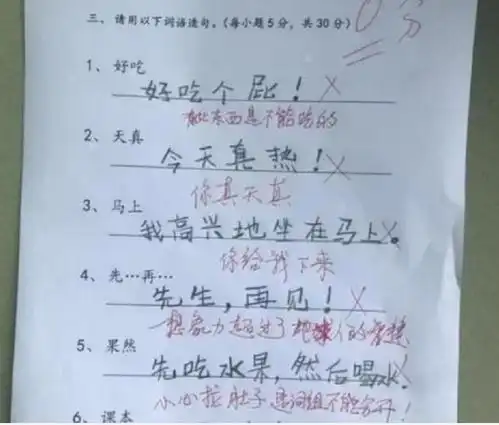 三、请用以下词语造句。(每小题5分，共30分) 0分
1、好吃
好吃个屁！
有些东西是不能吃的
2、天真
今天真热！
你真天真
3、马上
我高兴地坐在马上。
你给我下来
4、先…再…
先生，再见！
想象力超过了地球人的智慧
5、果然
先吃水果，然后喝水。
小心拉肚子，是词组不能分开！
6、课本